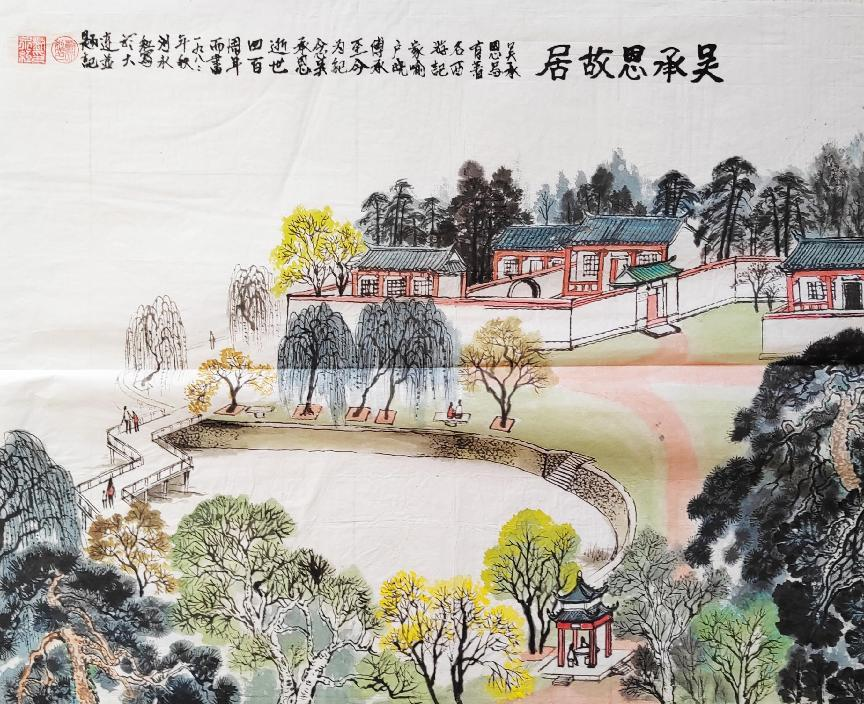 吴承恩故居
吴承
恩
有著
名西
游记
家喻
户晓
傅承
至今
为纪
念吴
承恩
逝世
四百
周年
而画
一九八二
年秋
刘永
写
於大
连並
题记